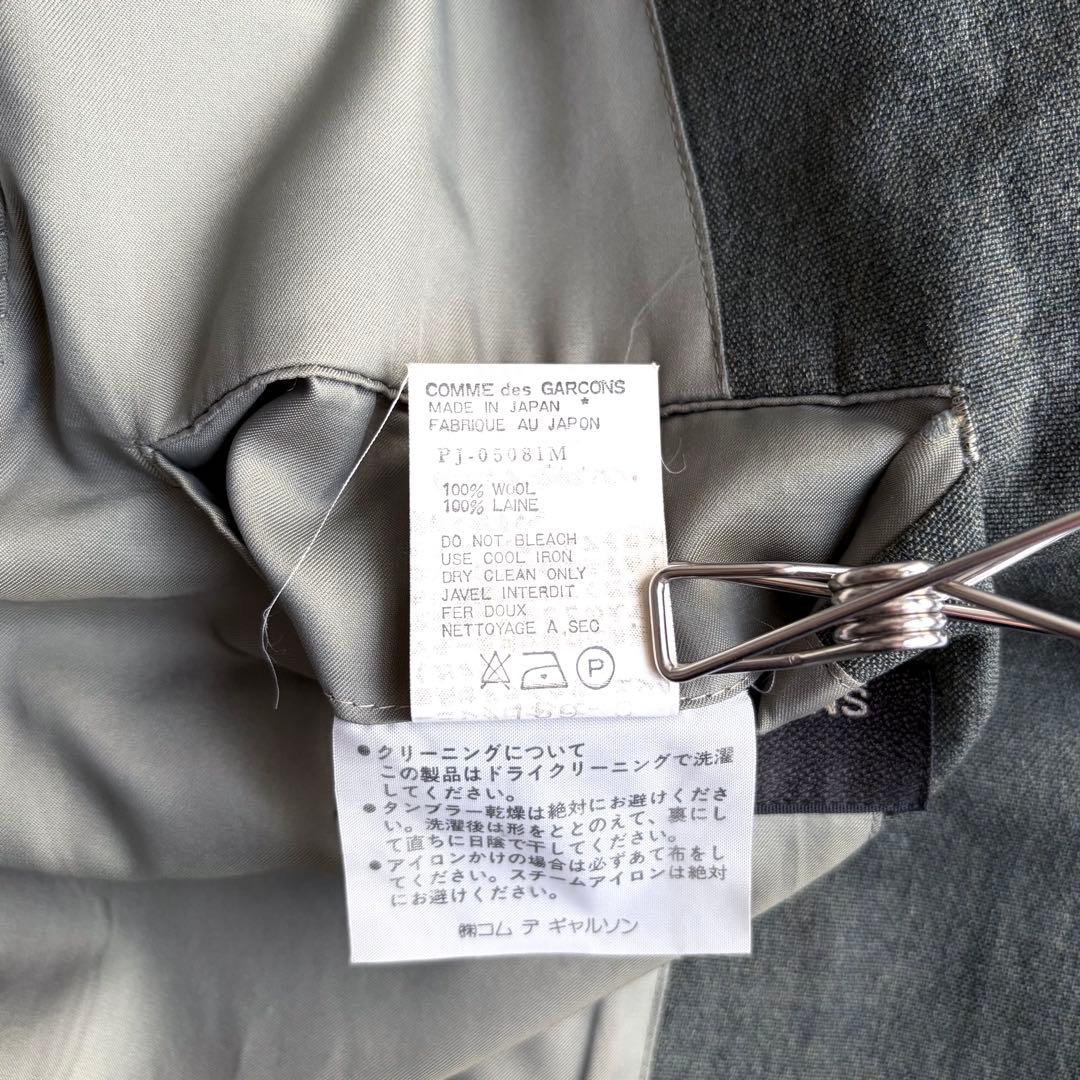 COMME des GARCONS
MADE IN JAPAN *
FABRIQUE AU JAPON
PJ-05081M
100% WOOL
100% LAINE
DO NOT BLEACH
USE COOL IRON
DRY CLEAN ONLY
JAVEL INTERDIT
FER DOUX
NETTOYAGE A SEC
P
●クリーニングについて
この製品はドライクリーニングで洗濯
してください。
●タンブラー乾燥は絶対にお避けくださ
い。洗濯後は形をととのえて、裏にし
て直ちに日陰で干してください。
●アイロンかけの場合は必ずあて布をし
てください。スチームアイロンは絶対
にお避けください。
㈱コム デ ギャルソン